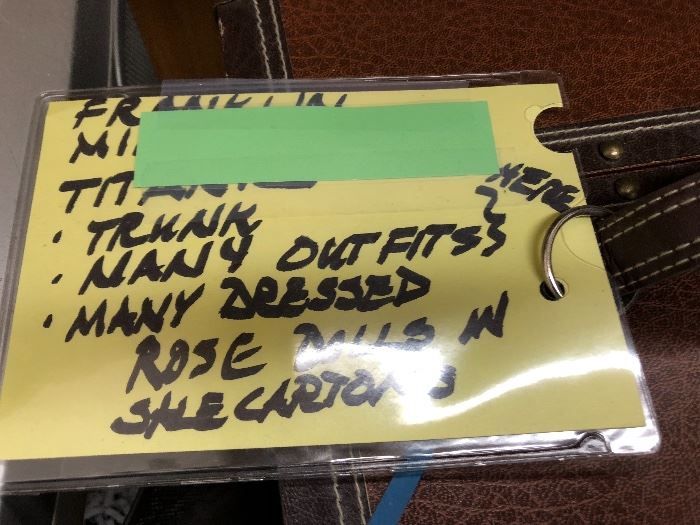 FRANKLIN
TITANIC
• TRUNK
• MANY OUTFITS } HERE
• MANY DRESSED
ROSE DOLLS IN
SALE CARTONS